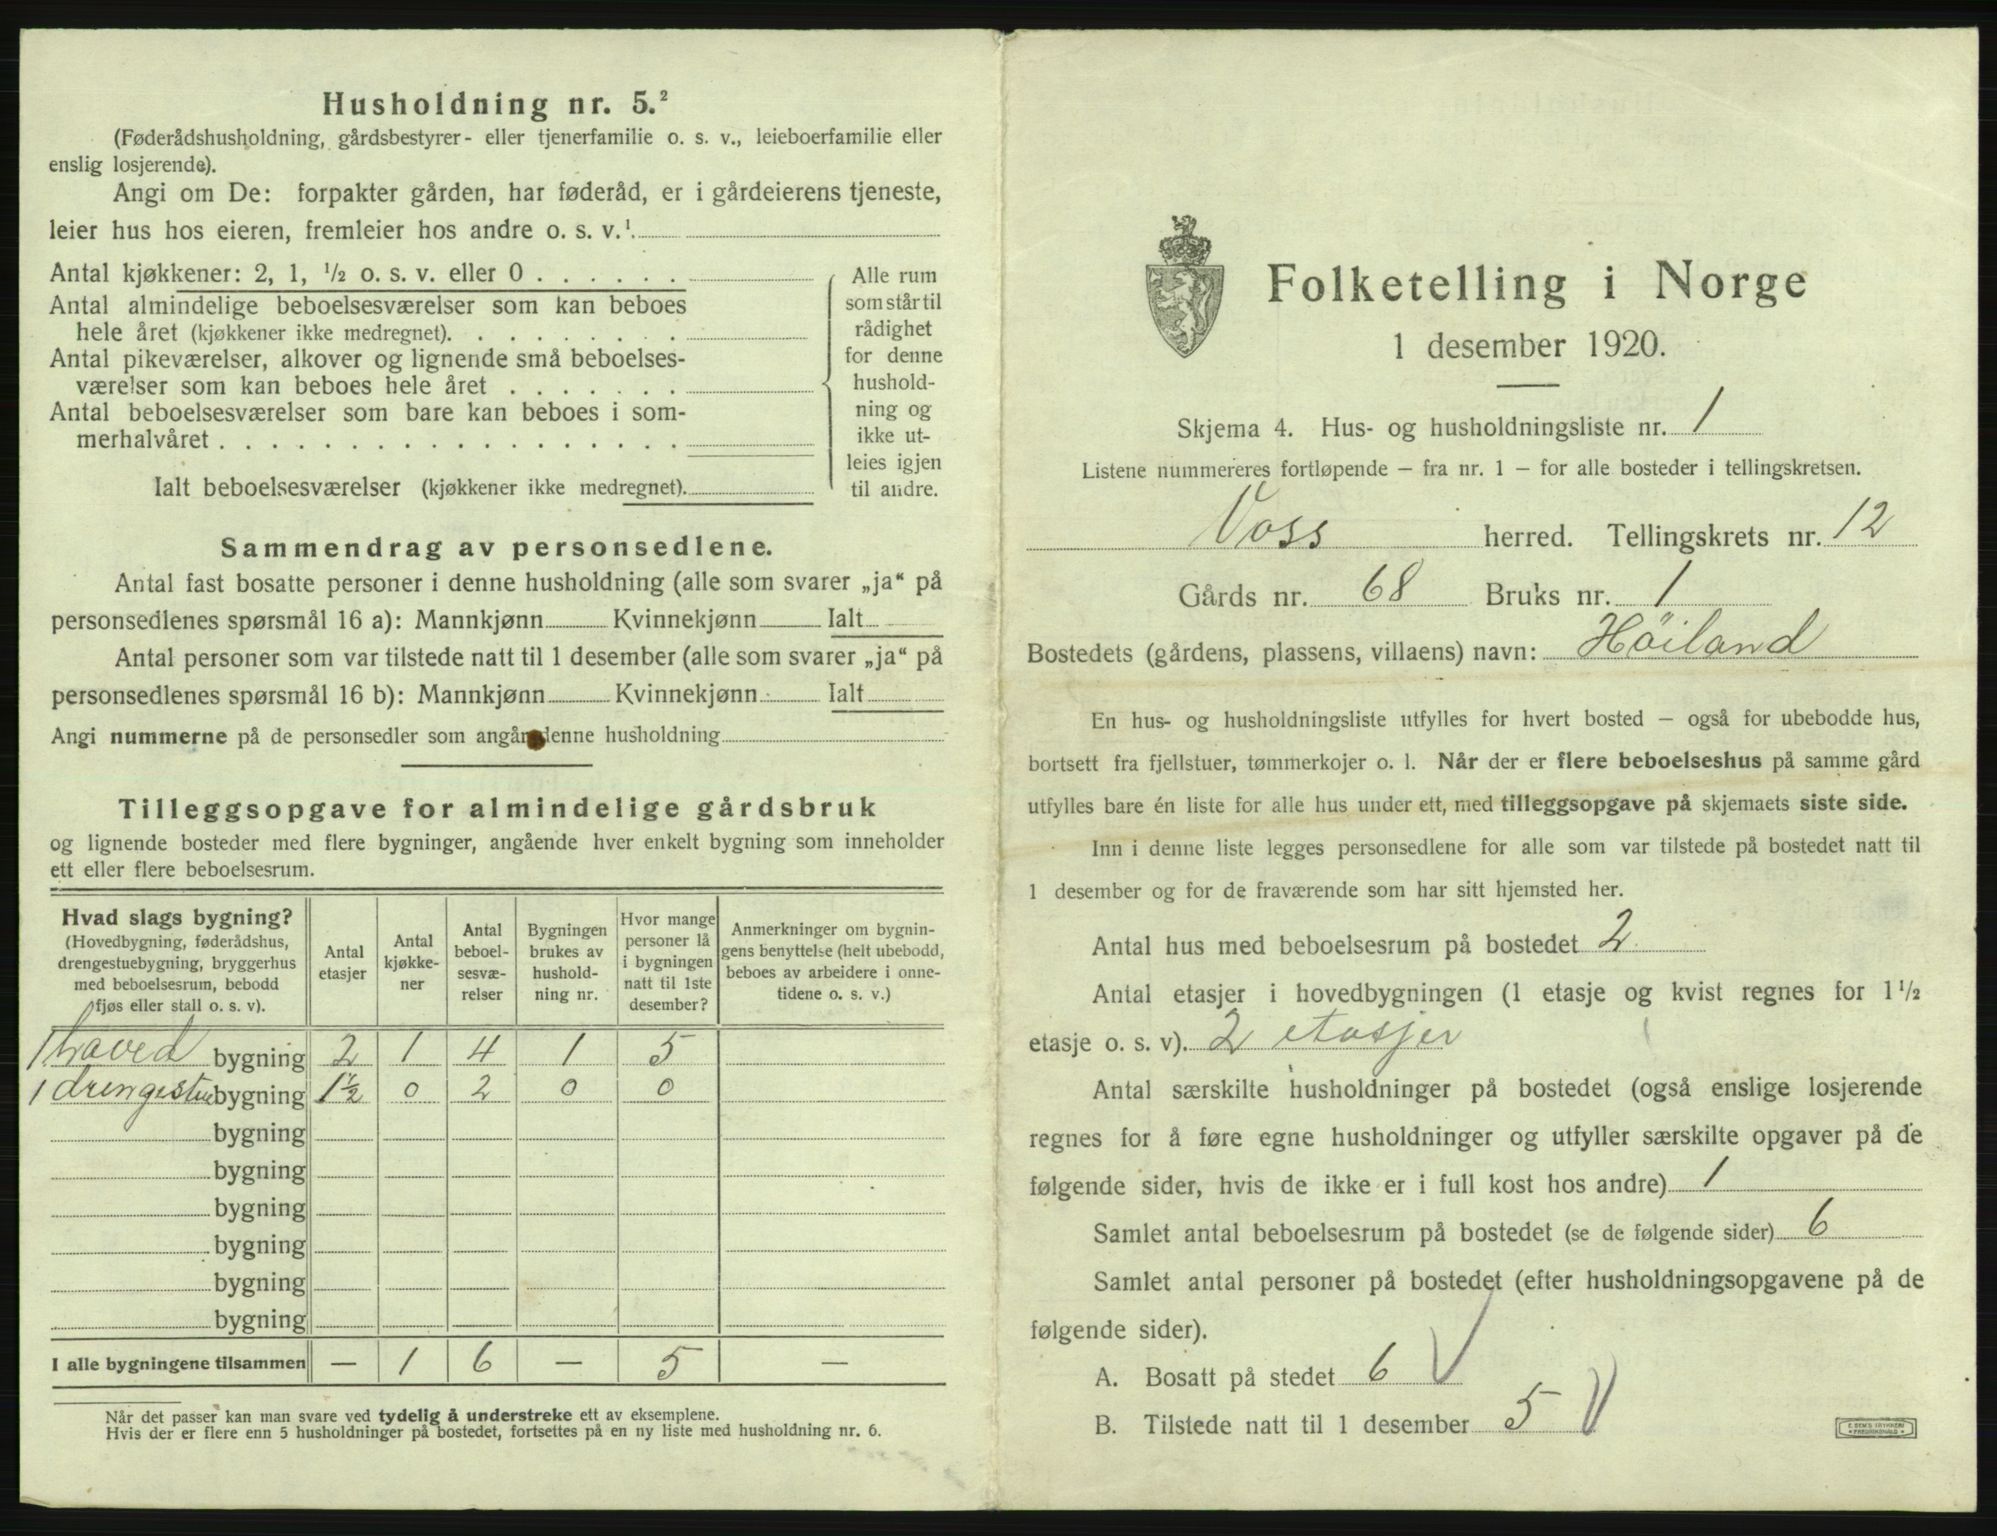 Husholdning nr. 5.²
(Føderådshusholdning, gårdsbestyrer- eller tjenerfamilie o. s. v., leieboerfamilie eller
enslig losjerende).
Angi om De: forpakter gården, har føderåd, er i gårdeierens tjeneste,
leier hus hos eieren, fremleier hos andre o. s. v.¹.
Antal kjøkkener: 2, 1, ½ o. s. v. eller 0 . . . . . .
Antal almindelige beboelsesværelser som kan beboes
hele året (kjøkkener ikke medregnet). . . . . . . . .
Antal pikeværelser, alkover og lignende små beboelses-
værelser som kan beboes hele året . . . . . . .
Antal beboelsesværelser som bare kan beboes i som-
merhalvåret . . . . . . . . . . . . . . . . . .
Ialt beboelsesværelser (kjøkkener ikke medregnet).
Alle rum
som står til
rådighet
for denne
hushold-
ning og
ikke ut-
leies igjen
til andre.
Sammendrag av personsedlene.
Antal fast bosatte personer i denne husholdning (alle som svarer „ja“ på
personsedlenes spørsmål 16 a): Mannkjønn Kvinnekjønn Ialt
Antal personer som var tilstede natt til 1 desember (alle som svarer „ja“ på
personsedlenes spørsmål 16 b): Mannkjønn Kvinnekjønn Ialt
Angi nummerne på de personsedler som angår denne husholdning
Tilleggsopgave for almindelige gårdsbruk
og lignende bosteder med flere bygninger, angående hver enkelt bygning som inneholder
ett eller flere beboelsesrum.
Hvad slags bygning?
(Hovedbygning, føderådshus,
drengestuebygning, bryggerhus
med beboelsesrum, bebodd
fjøs eller stall o. s. v).
Antal
etasjer
Antal
kjøkke-
ner
Antal
beboel-
sesvæ-
relser
Bygningen
brukes av
hushold-
ning nr.
Hvor mange
personer lå
i bygningen
natt til 1ste
desember?
Anmerkninger om bygnin-
gens benyttelse (helt ubebodd,
beboes av arbeidere i onne-
tidene o. s. v.)
1 hoved bygning 2 1 4 1 5
1 drengestue bygning 1½ 0 2 0 0
bygning
bygning
bygning
bygning
bygning
bygning
I alle bygningene tilsammen — 1 6 — 5 —
Når det passer kan man svare ved tydelig å understreke ett av eksemplene.
Hvis der er flere enn 5 husholdninger på bostedet, fortsettes på en ny liste med husholdning nr. 6.
Folketelling i Norge
1 desember 1920.
Skjema 4. Hus- og husholdningsliste nr. 1
Listene nummereres fortløpende – fra nr. 1 – for alle bosteder i tellingskretsen.
Voss herred. Tellingskrets nr. 12
Gårds nr. 68 Bruks nr. 1
Bostedets (gårdens, plassens, villaens) navn: Höiland
En hus- og husholdningsliste utfylles for hvert bosted – også for ubebodde hus,
bortsett fra fjellstuer, tømmerkojer o. l. Når der er flere beboelseshus på samme gård
utfylles bare én liste for alle hus under ett, med tilleggsopgave på skjemaets siste side.
Inn i denne liste legges personsedlene for alle som var tilstede på bostedet natt til
1 desember og for de fraværende som har sitt hjemsted her.
Antal hus med beboelsesrum på bostedet 2
Antal etasjer i hovedbygningen (1 etasje og kvist regnes for 1½
etasje o. s. v). 2 etasjer
Antal særskilte husholdninger på bostedet (også enslige losjerende
regnes for å føre egne husholdninger og utfyller særskilte opgaver på de
følgende sider, hvis de ikke er i full kost hos andre) 1
Samlet antal beboelsesrum på bostedet (se de følgende sider) 6
Samlet antal personer på bostedet (efter husholdningsopgavene på de
følgende sider).
A. Bosatt på stedet 6 V
B. Tilstede natt til 1 desember 5 V